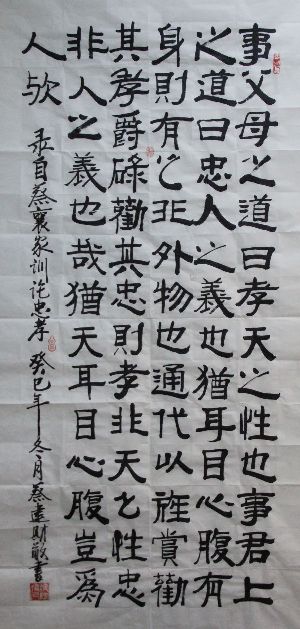 事父母之道曰孝天之性也事君上
之道曰忠人之義也猶耳目心腹有
身則有之非外物也通代以旌賞勸
其孝爵祿勸其忠則孝非天之性忠
非人之義也哉猶天耳目心腹豈為
人欤
录自蔡襄家訓論忠孝 癸巳年冬月蔡建財敬書